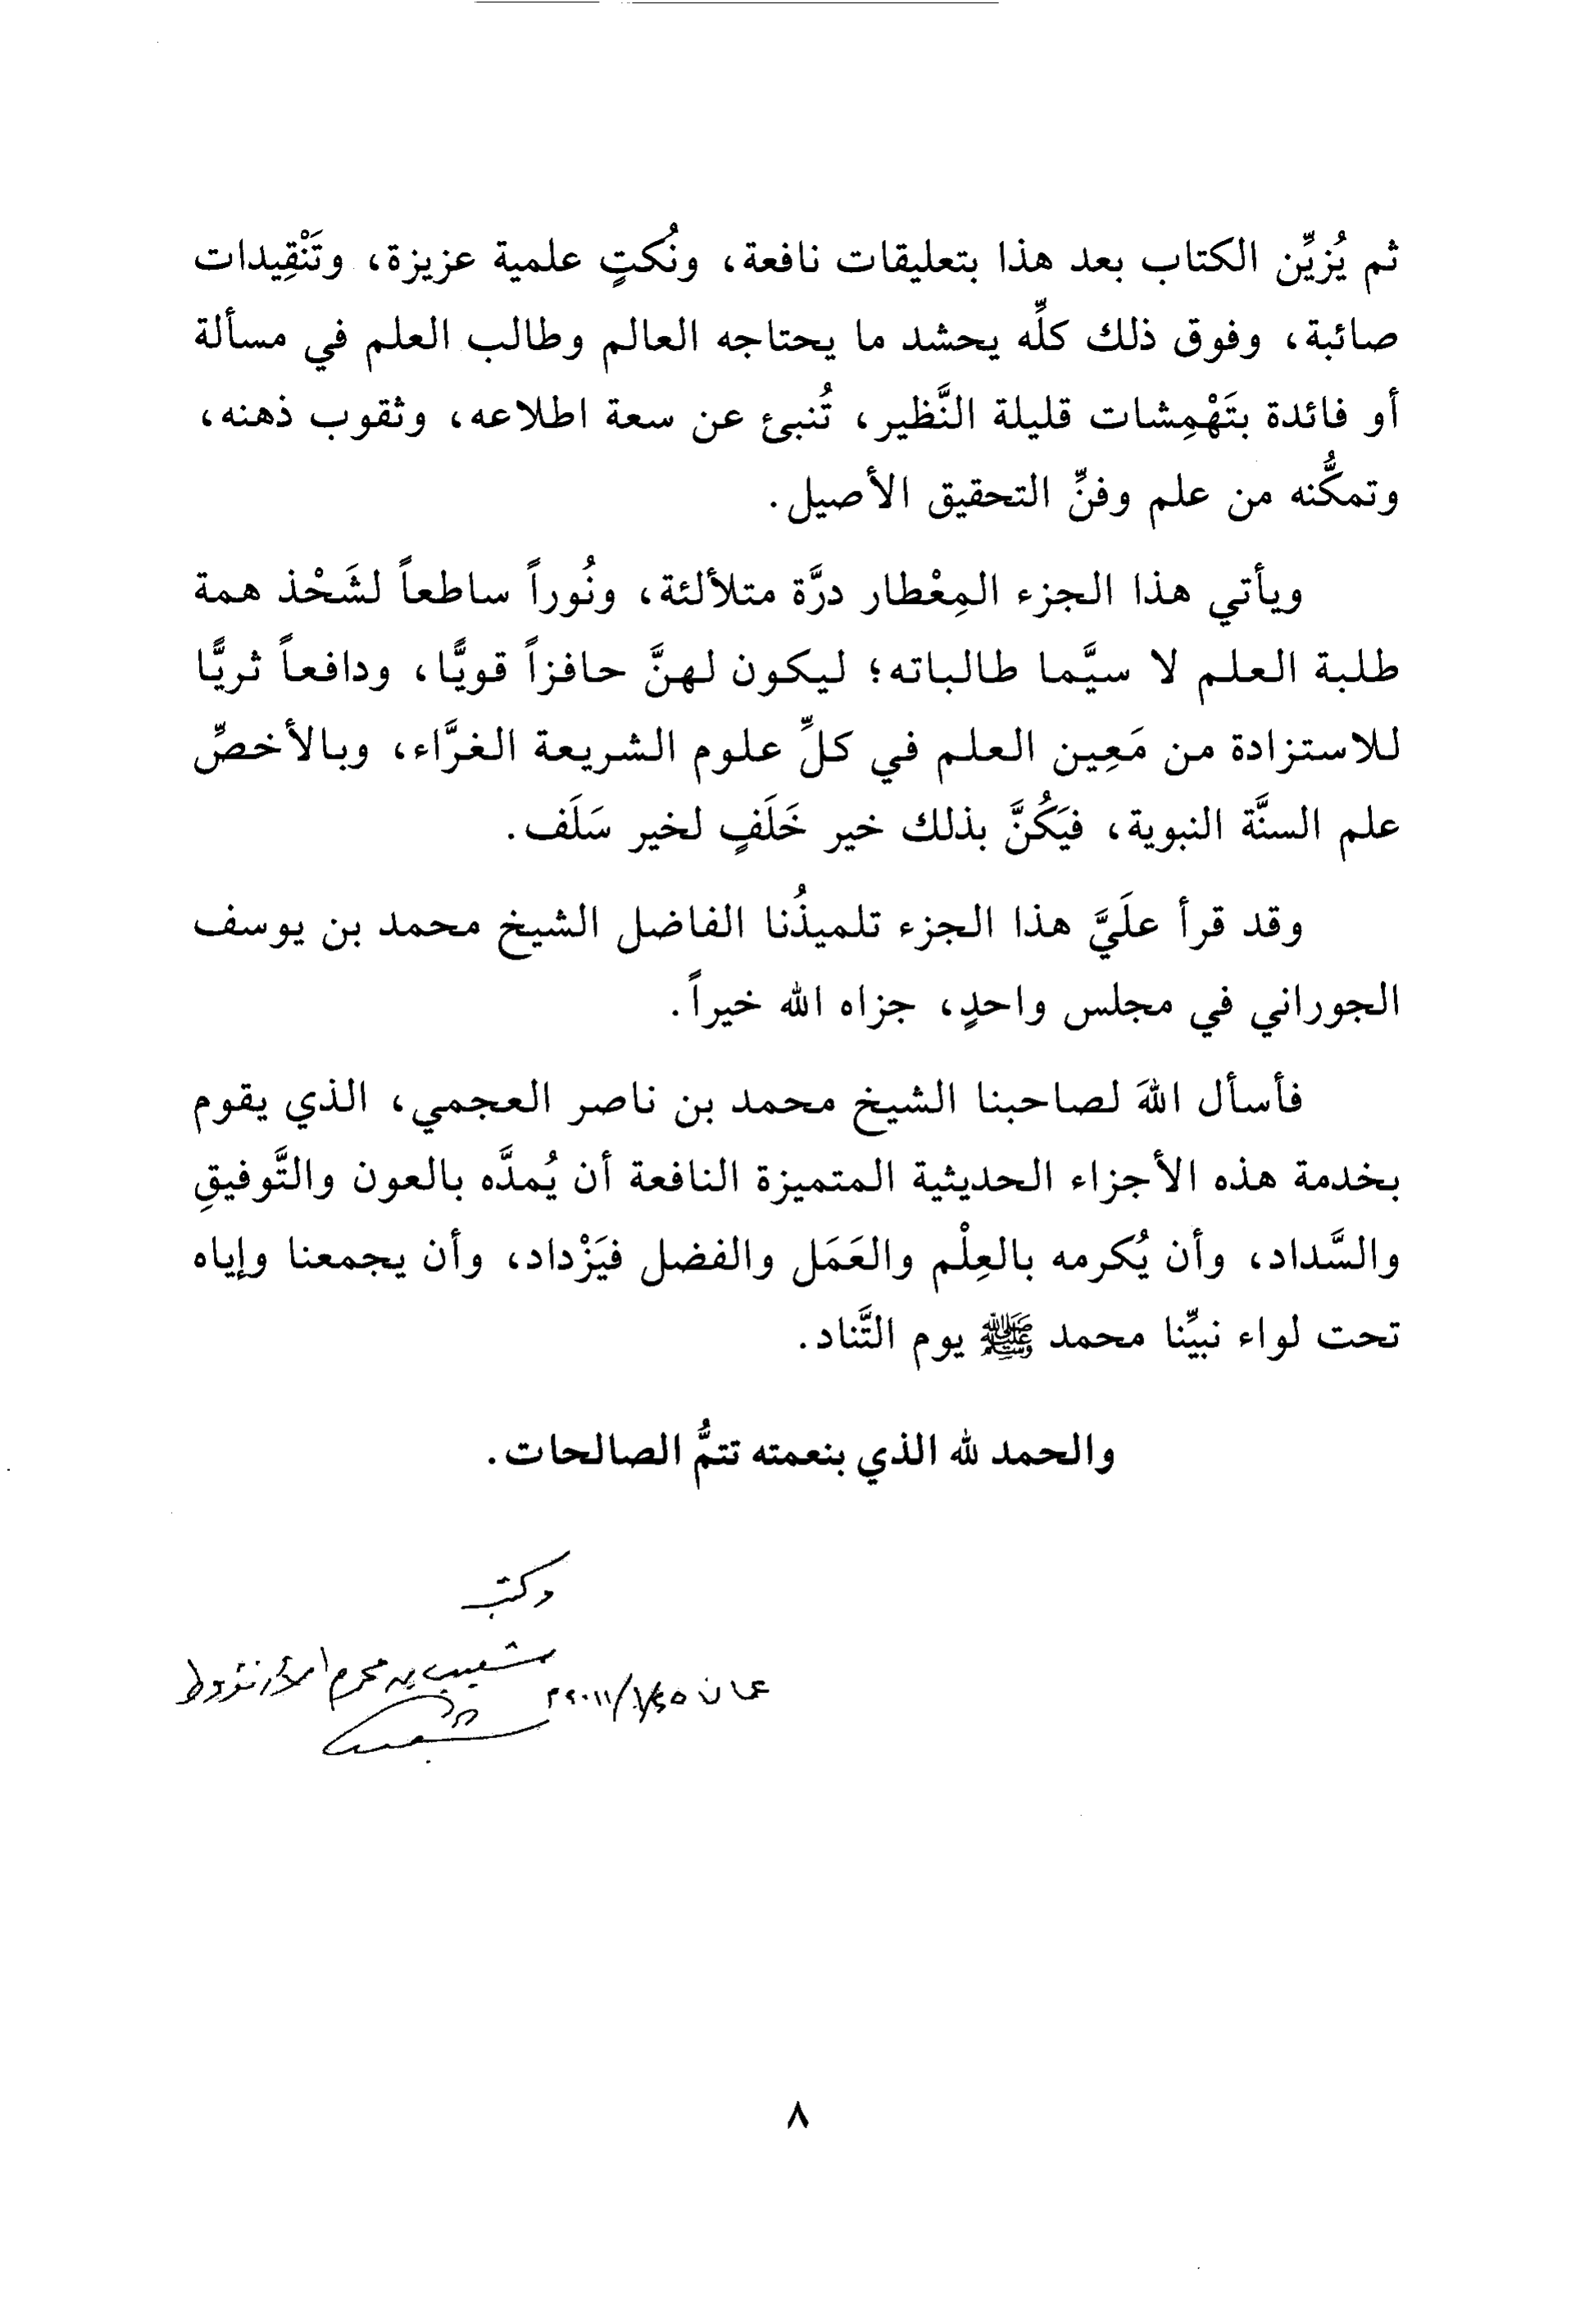 ثم يُزيِّن الكتاب بعد هذا بتعليقات نافعة، ونُكتٍ علمية عزيزة، وتَنْقِيدات
صائبة، وفوق ذلك كلِّه يحشد ما يحتاجه العالم وطالب العلم في مسألة
أو فائدة بتَهْمِشات قليلة النَّظير، تُنبئ عن سعة اطلاعه، وثقوب ذهنه،
وتمكُّنه من علم وفنِّ التحقيق الأصيل.
ويأتي هذا الجزء المِعْطار درَّة متلألئة، ونُوراً ساطعاً لشَحْذ همة
طلبة العلم لا سيَّما طالباته؛ ليكون لهنَّ حافزاً قويًّا، ودافعاً ثريًّا
للاستزادة من مَعِين العلم في كلِّ علوم الشريعة الغرَّاء، وبالأخصِّ
علم السنَّة النبوية، فيَكُنَّ بذلك خير خَلَفٍ لخير سَلَف.
وقد قرأ علَيَّ هذا الجزء تلميذُنا الفاضل الشيخ محمد بن يوسف
الجوراني في مجلس واحدٍ، جزاه الله خيراً.
فأسأل اللهَ لصاحبنا الشيخ محمد بن ناصر العجمي، الذي يقوم
بخدمة هذه الأجزاء الحديثية المتميزة النافعة أن يُمدَّه بالعون والتَّوفيقِ
والسَّداد، وأن يُكرمه بالعِلْم والعَمَل والفضل فيَزْداد، وأن يجمعنا وإياه
تحت لواء نبيِّنا محمد ﷺ يوم التَّناد.
والحمد لله الذي بنعمته تتمُّ الصالحات.
وكتب
شعيب بن محرم الأرنؤوط
عمان
٨